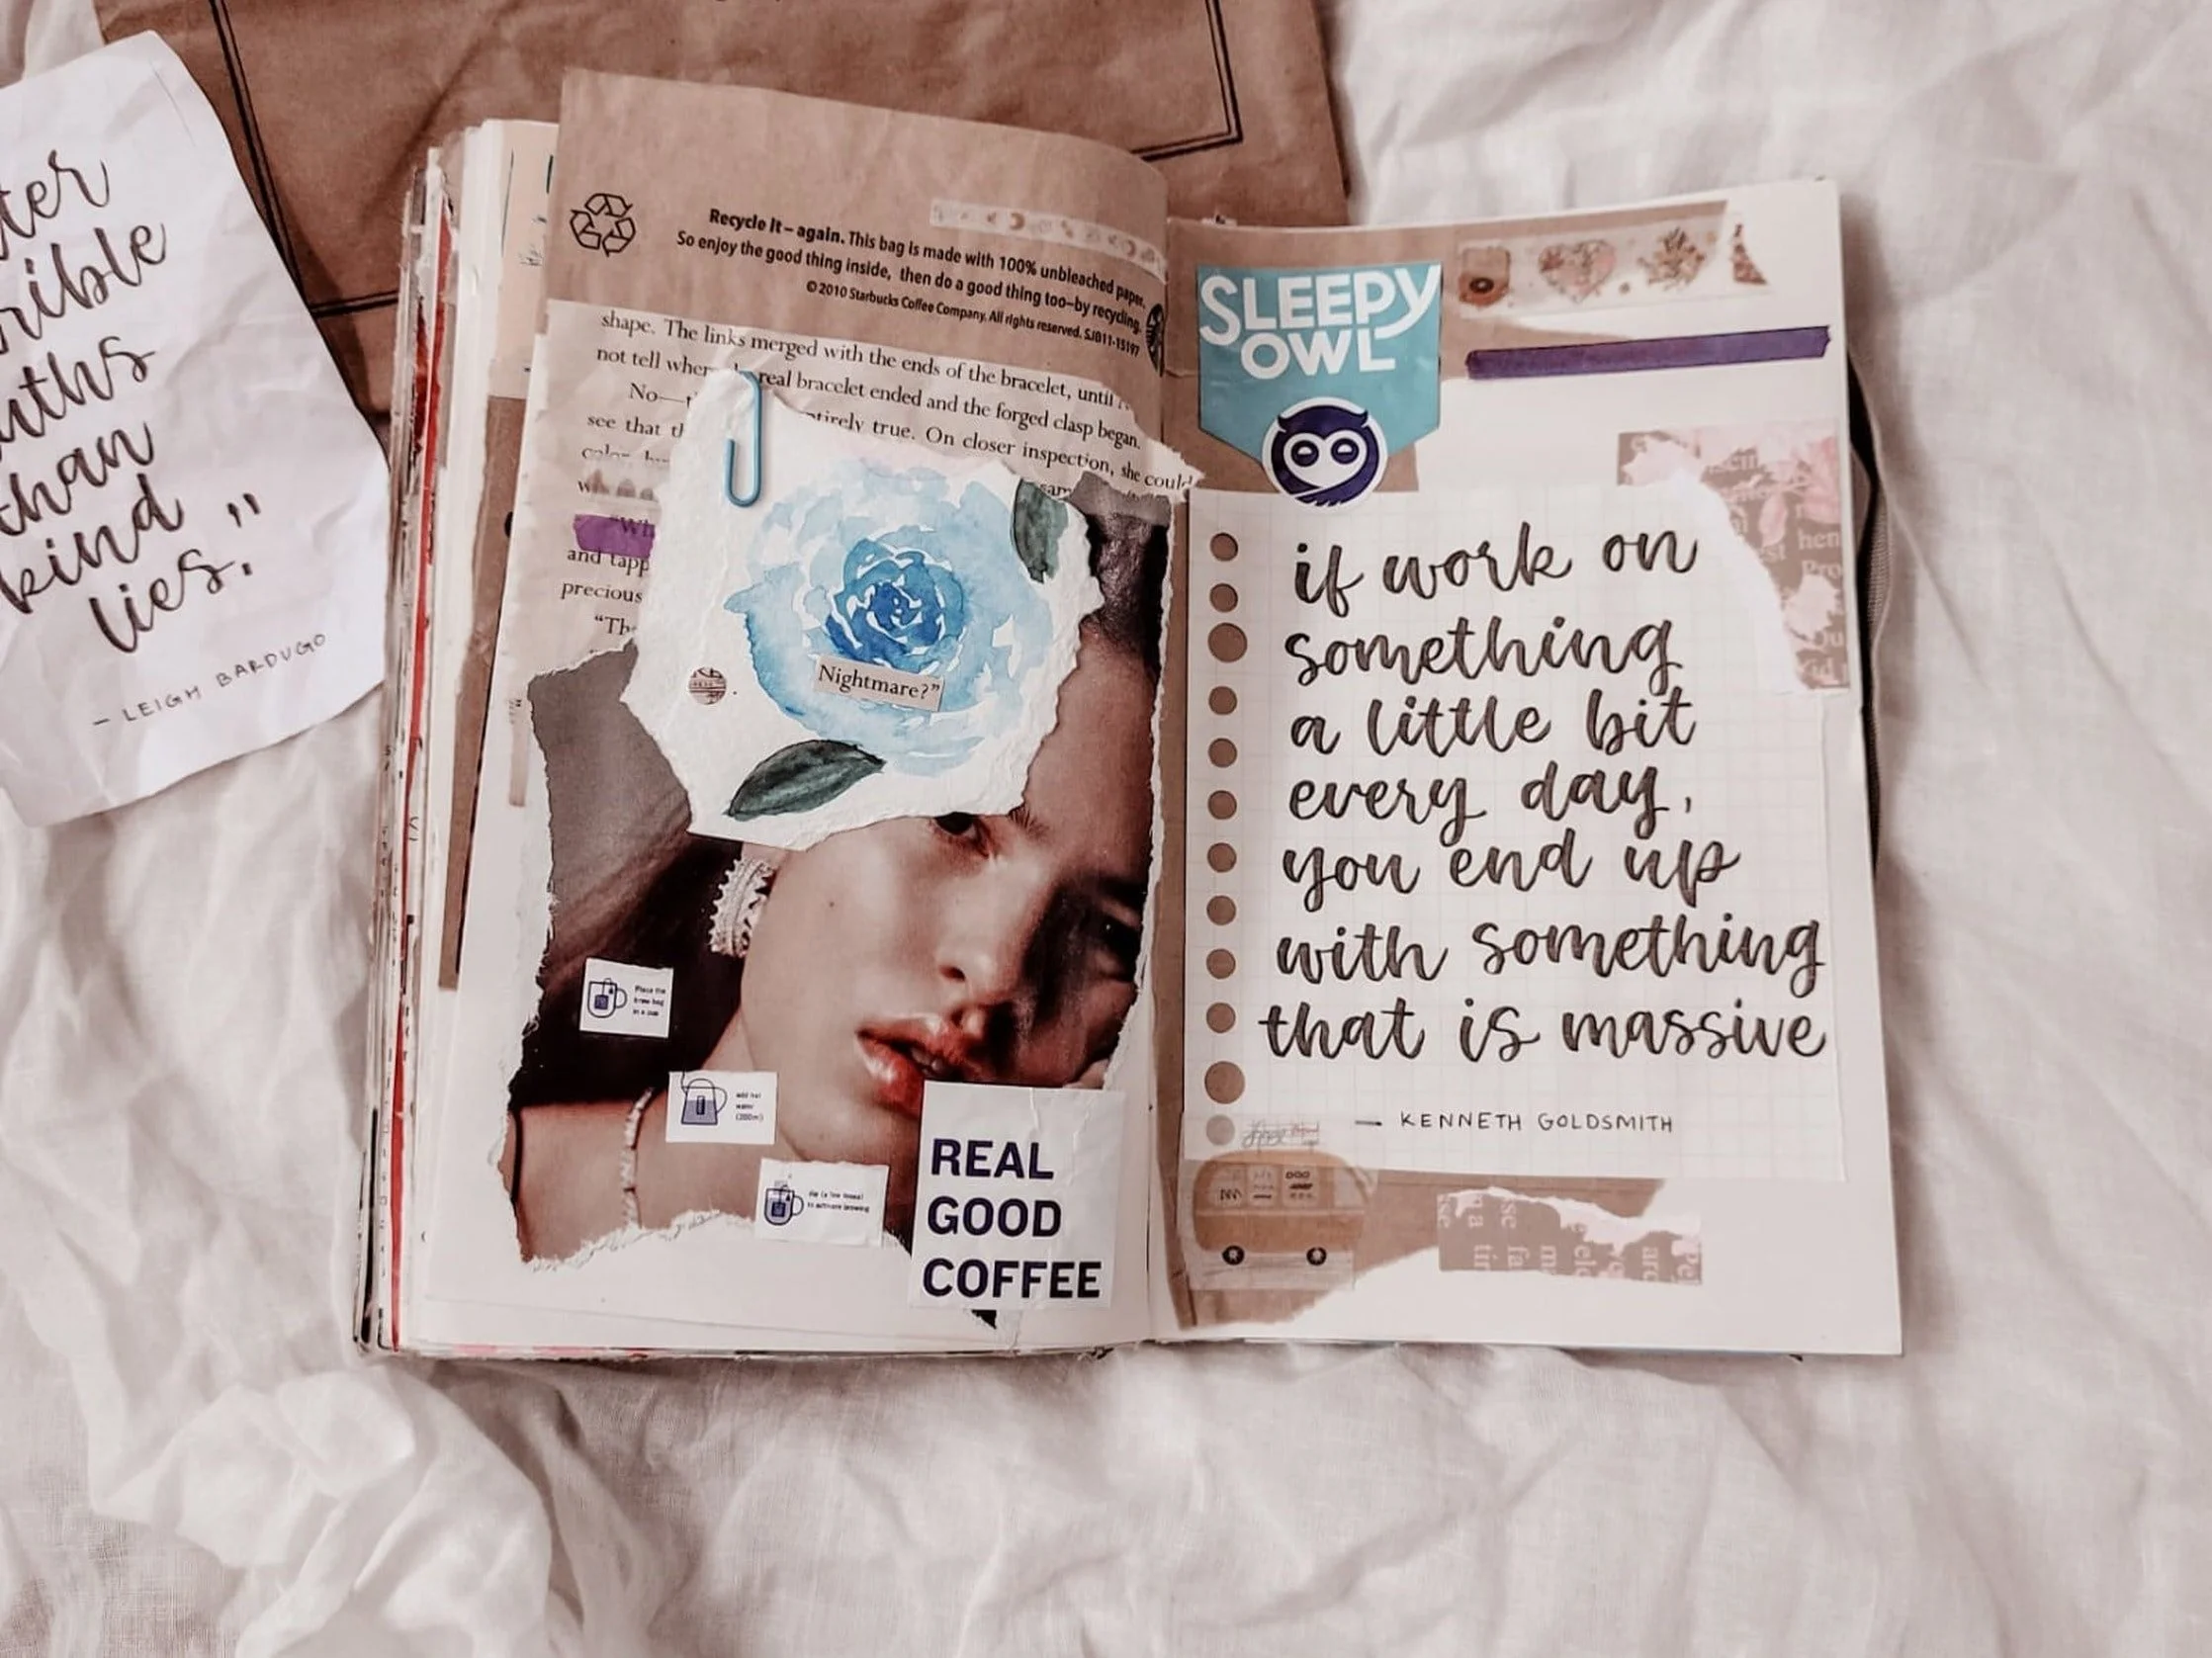 rible
than
kind
lies."
— LEIGH BARDUGO
Recycle It – again. This bag is made with 100% unbleached paper.
So enjoy the good thing inside, then do a good thing too—by recycling.
© 2010 Starbucks Coffee Company. All rights reserved. SJB11-15197
shape. The links merged with the ends of the bracelet, until
not tell real bracelet ended and the forged clasp began.
No—
entirely true. On closer inspection, she could
see that
"Wh
and tapp
precious
"Th
Nightmare?"
Place the
brew bag
in a cup
add hot
water
(200ml)
REAL
GOOD
COFFEE
SLEEPY
OWL
if work on
something
a little bit
every day,
you end up
with something
that is massive
— KENNETH GOLDSMITH
hen
Pro